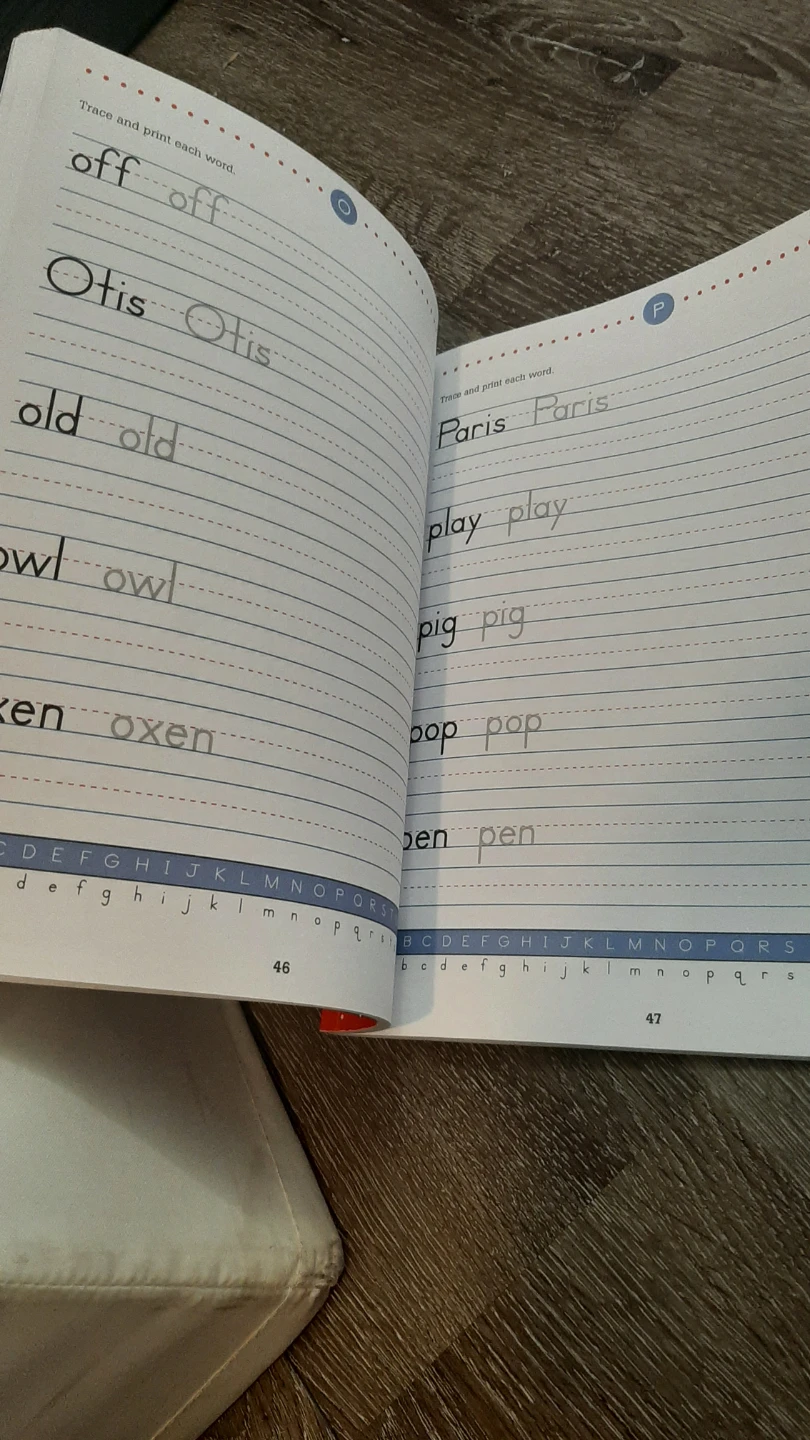 Trace and print each word.
O
off off
Otis Otis
old old
owl owl
xen oxen
C D E F G H I J K L M N O P Q R S T
d e f g h i j k l m n o p q r s
46
P
Trace and print each word.
Paris Paris
play play
pig pig
pop pop
pen pen
B C D E F G H I J K L M N O P Q R S
b c d e f g h i j k l m n o p q r s
47